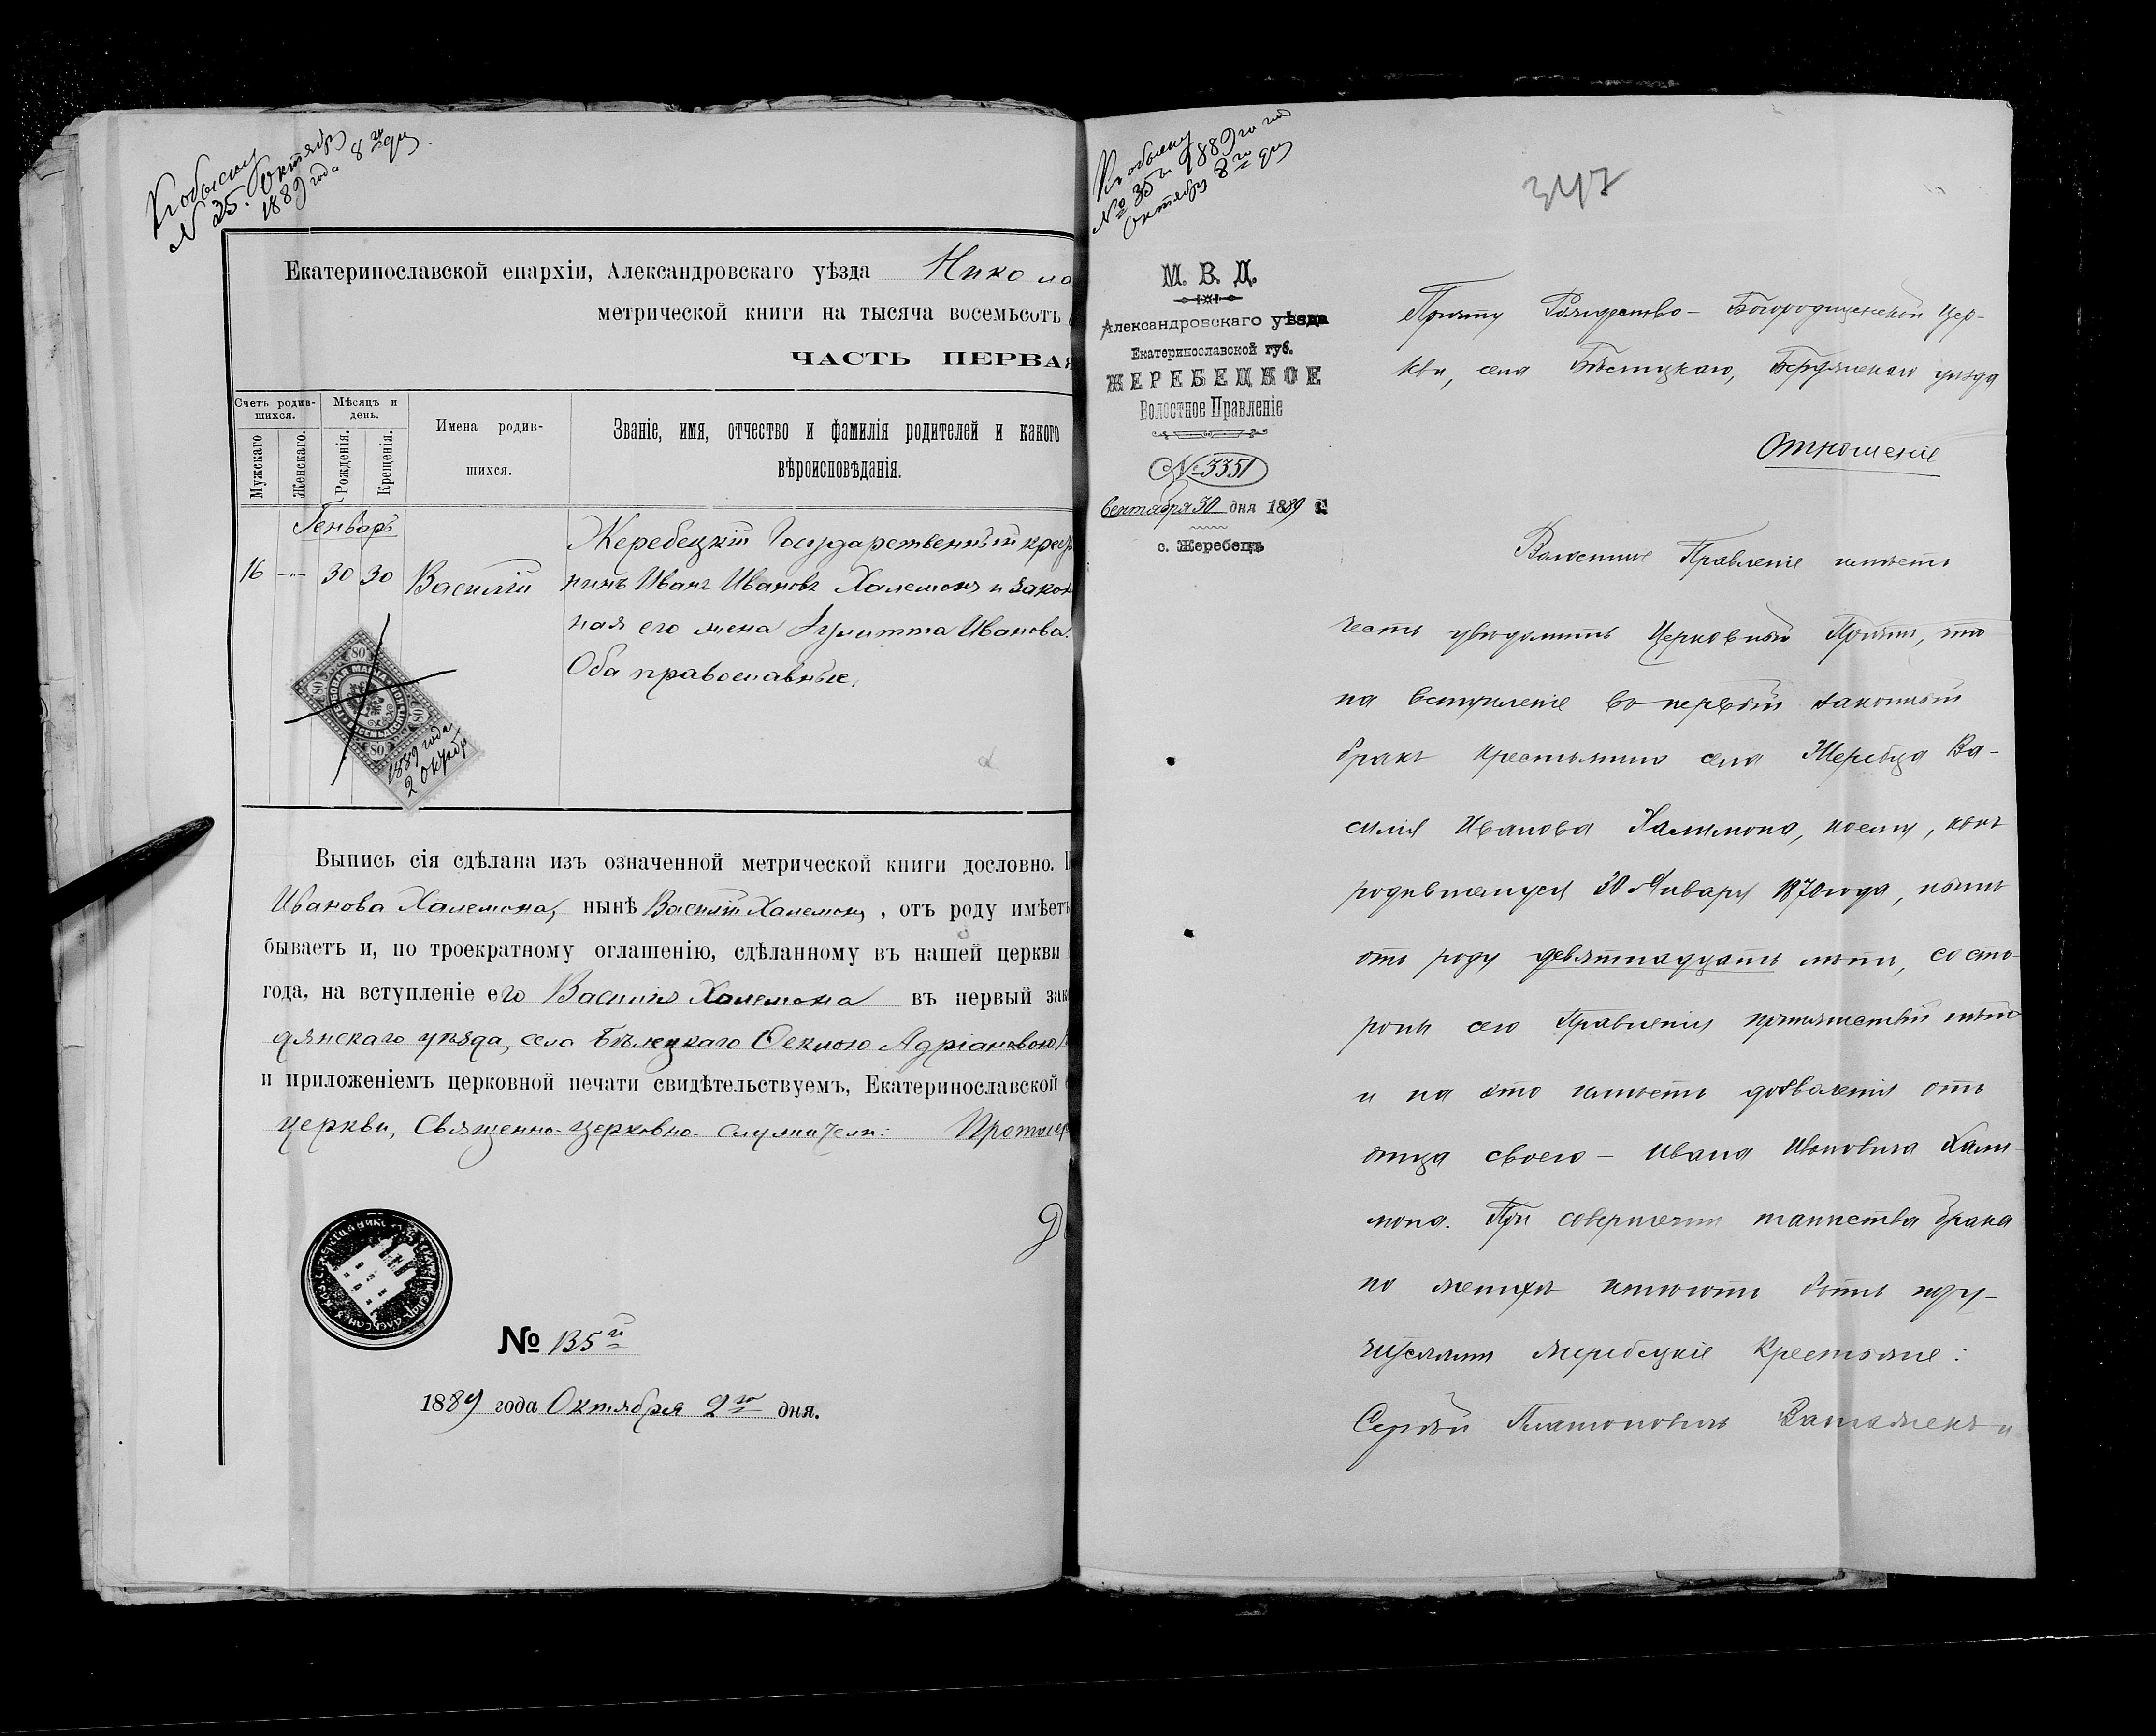 Къ обыску
№ 35. Октября
1889 года 8го дня.
Екатеринославской епархіи, Александровскаго уѣзда Нико
метрической книги на тысяча восемьсотъ
ЧАСТЬ ПЕРВАЯ
Счетъ родив-
шихся.
Мѣсяцъ и
день.
Мужскаго
Женскаго.
Рожденія.
Крещенія.
Имена родив-
шихся.
Званіе, имя, отчество и фамилія родителей и какого
вѣроисповѣданія.
Генварь
16 — 30 30 Василій
Жеребецкій Государственный кресть
нинъ Иванъ Ивановъ Халемонъ и закон
ная его жена Іулитта Иванова.
Оба православные.
80
80
80
80
1889 года
2 Октября
Выпись сія сдѣлана изъ означенной метрической книги дословно.
Иванова Халемона, нынѣ Василій Халемонъ, отъ роду имѣетъ
бываетъ и, по троекратному оглашенію, сдѣланному въ нашей церкви
года, на вступленіе его Василія Халемона въ первый зак
дянскаго уѣзда, села Бѣлецкаго Ѳеклою Адріановою
и приложеніемъ церковной печати свидѣтельствуемъ, Екатеринославской
церкви, Священно-церковно-служители: Протоіер
№ 135й
1889 года Октября 2го дня.
Къ обыску
№ 35й 1889го год
Октября 8го дня
347
М. В. Д.
Александровскаго уѣзда
Екатеринославской губ.
ЖЕРЕБЕЦКОЕ
Волостное Правленіе
№ 3351
Сентября 30 дня 1889 г.
с. Жеребецъ
Причту Рождество-Богородиценской Цер-
кви, села Бѣлецкаго, Бердянскаго уѣзда
Отношеніе
Волостное Правленіе имѣетъ
честь увѣдомить Церковный Причтъ, что
на вступленіе въ первый законный
бракъ крестьянина села Жеребца Ва-
силія Иванова Халимона, коему, какъ
родившемуся 30 Января 1870 года, нынѣ
отъ роду девятнадцать лѣтъ, со сто-
роны сего Правленія препятствій нѣтъ
и на это имѣетъ дозволенія отъ
отца своего – Ивана Ивановича Хали-
мона. При совершеніи таинства брака
по женихѣ имѣютъ быть пору-
чителями жеребецкіе Крестьяне:
Сергѣй Платоновичъ